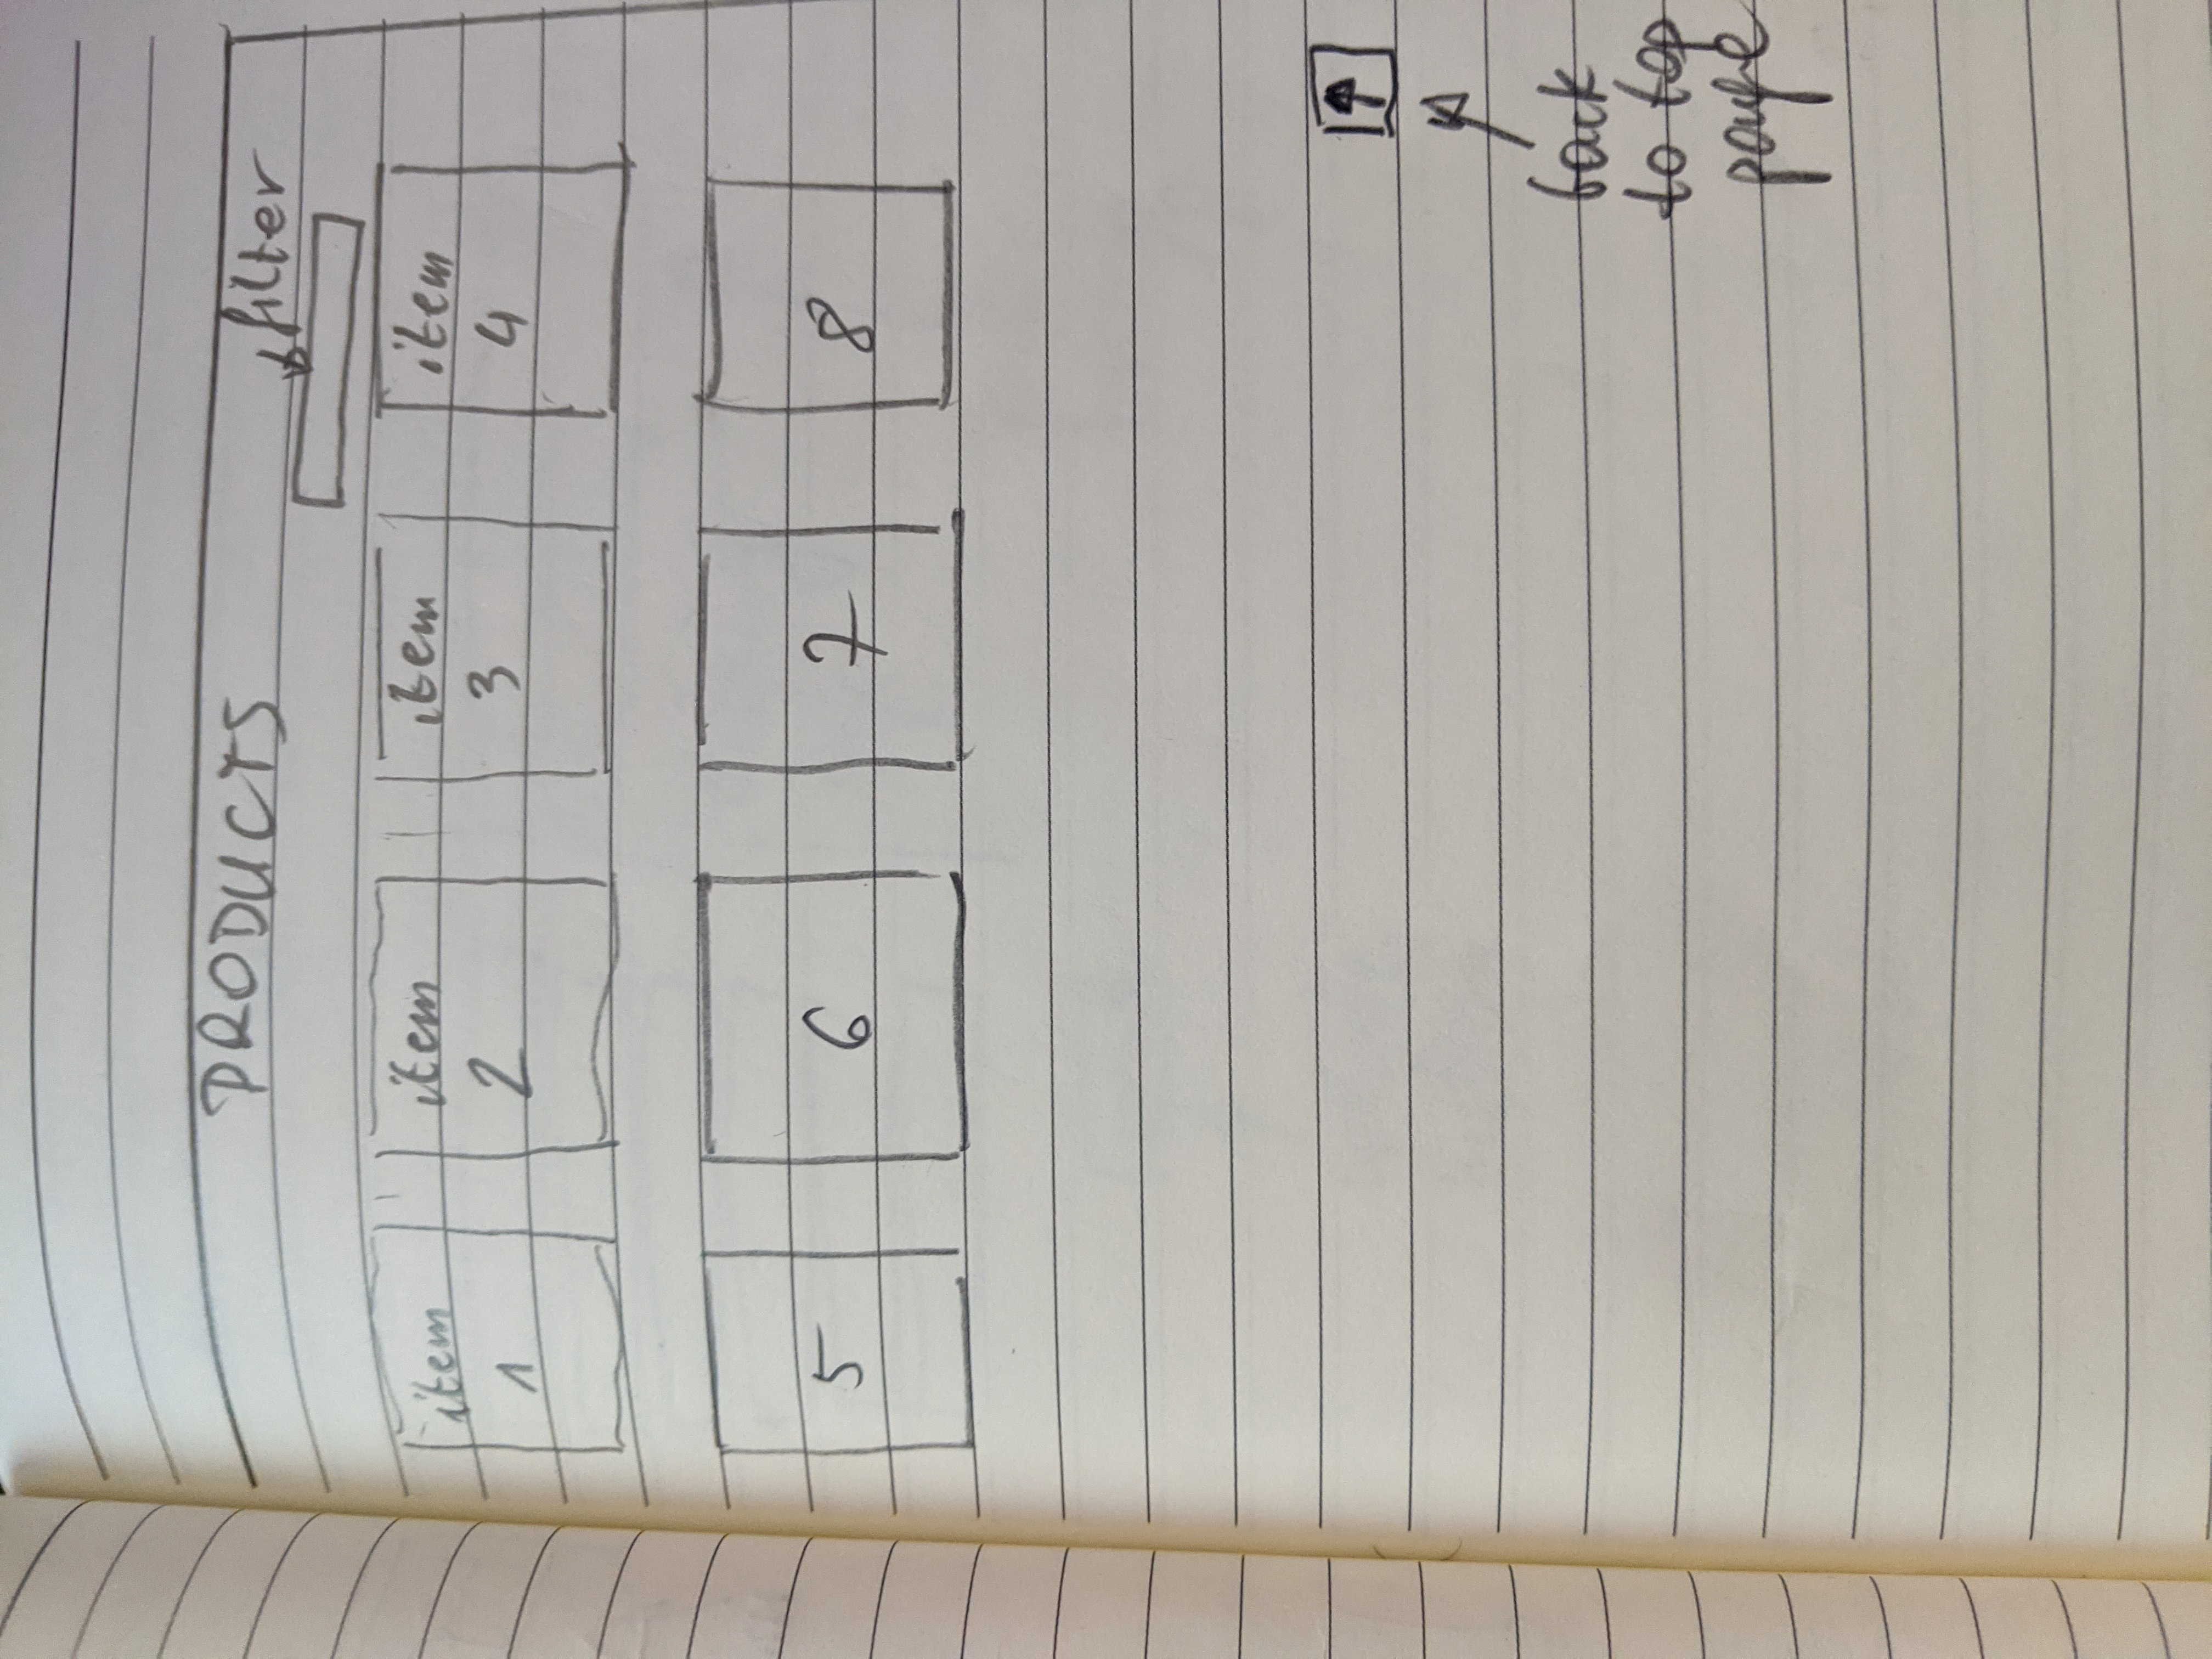 PRODUCTS
filter
item
1
item
2
item
3
item
4
5
6
7
8
back
to top
page